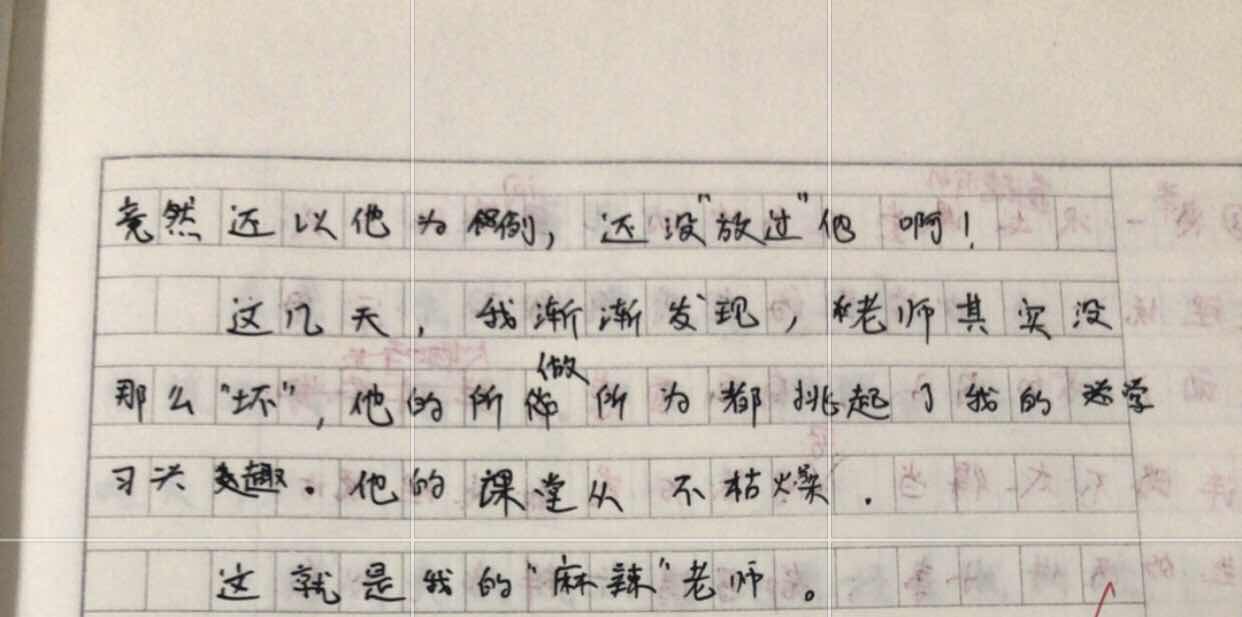 竟然还以他为例，还没"放过"他啊！
这几天，我渐渐发现，老师其实没
那么"坏"，他的所做所为都挑起了我的学
习兴趣。他的课堂从不枯燥.
这就是我的"麻辣"老师。